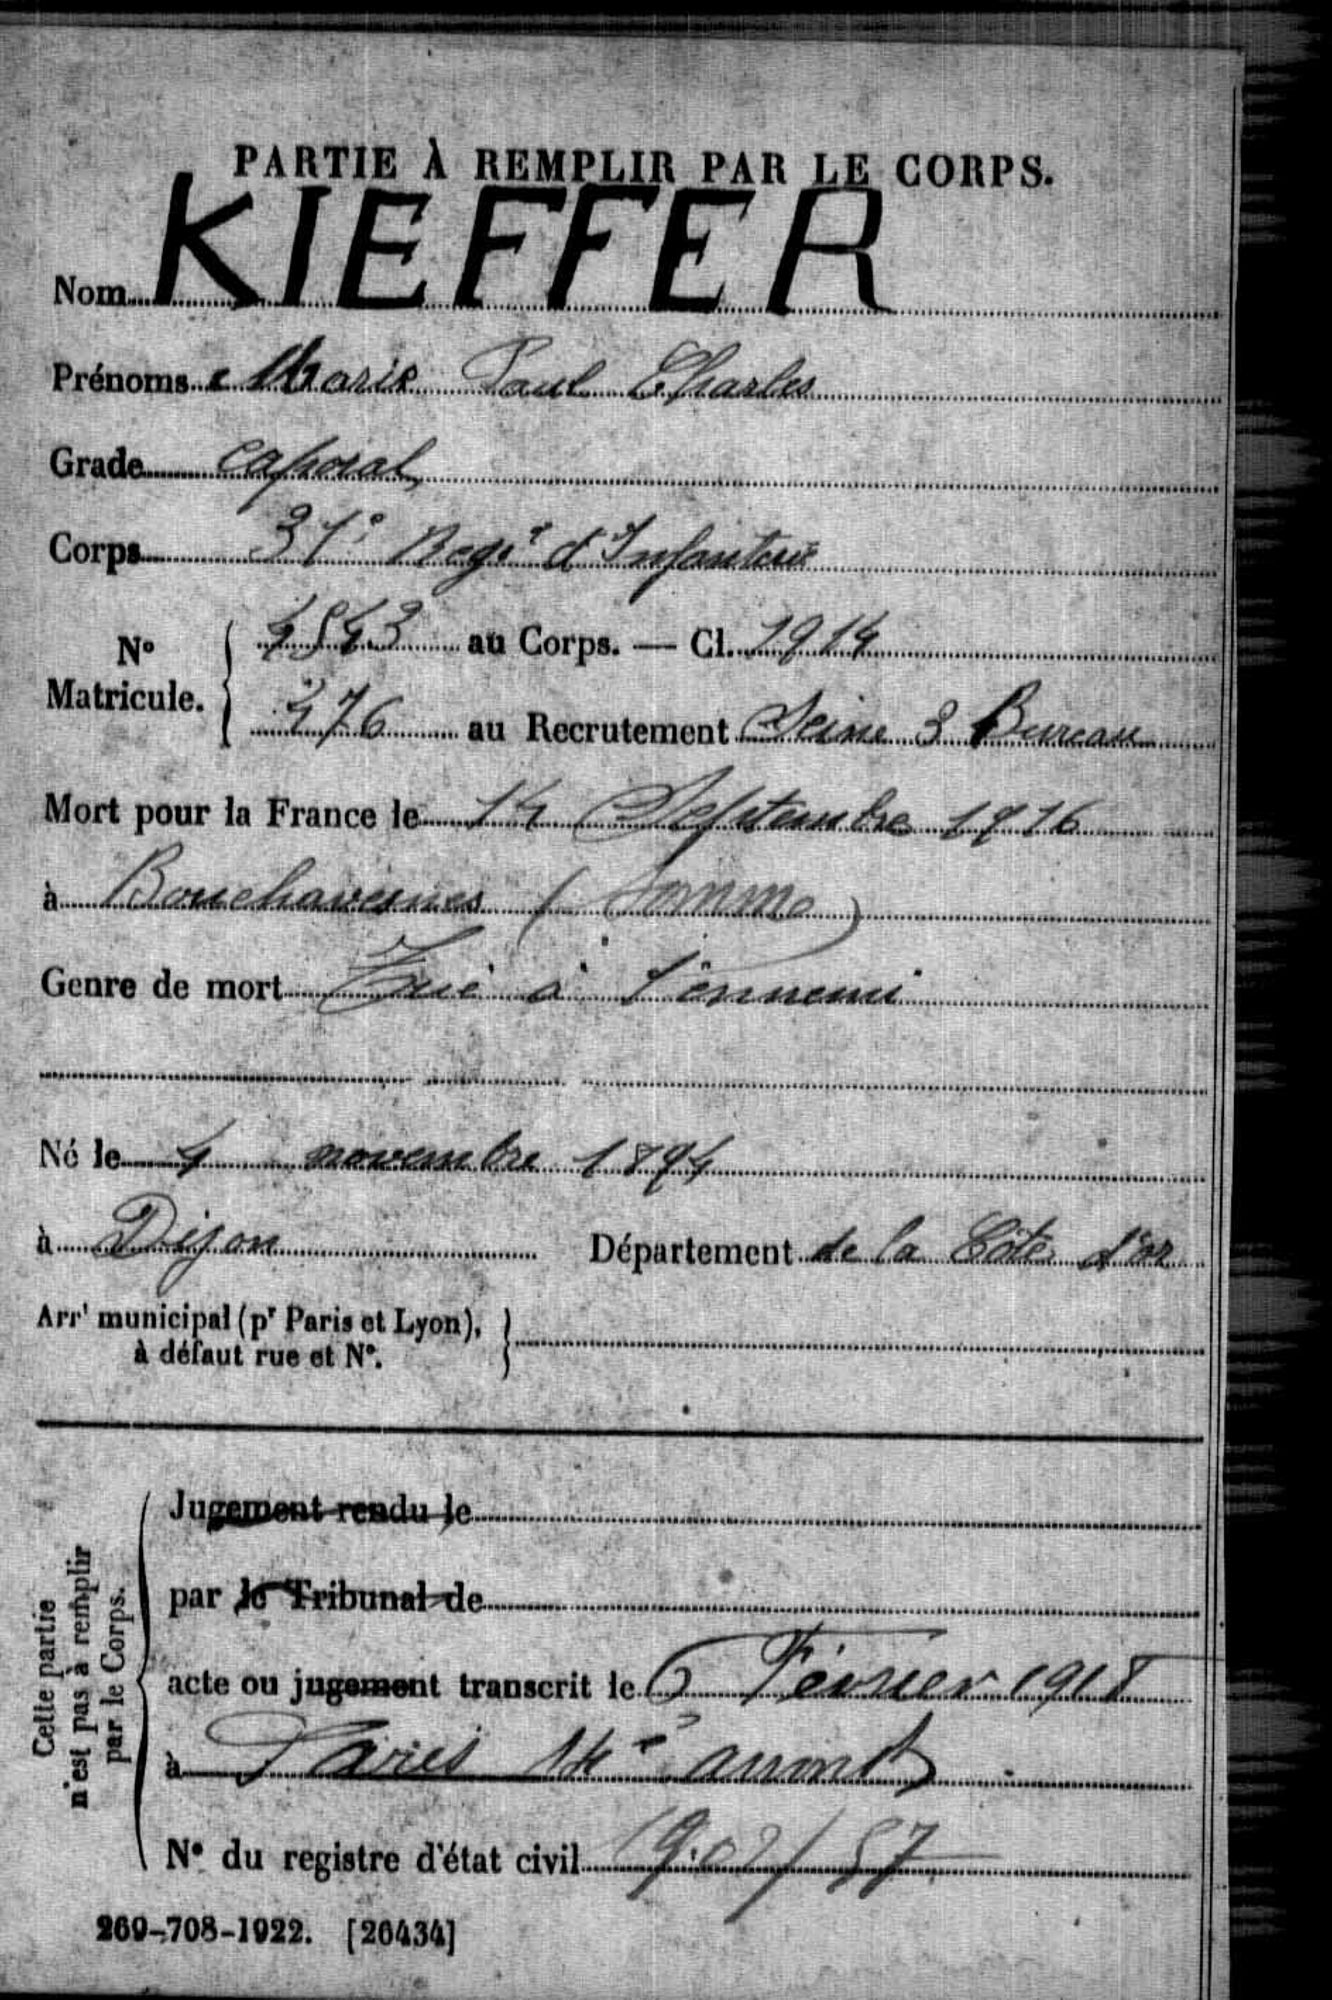 PARTIE À REMPLIR PAR LE CORPS.
Nom KIEFFER
Prénoms Marie Paul Charles
Grade caporal
Corps 37e Regt d'Infanterie
No Matricule. 4543 au Corps. — Cl. 1914
476 au Recrutement Seine 3 Bureau
Mort pour la France le 14 Septembre 1916
à Bouchavesnes (Somme)
Genre de mort Tué à l'ennemi
Né le 4 novembre 1894
à Dijon Département de la Côte d'or
Arrt municipal (pr Paris et Lyon),
à défaut rue et No.
Cette partie
n'est pas à remplir
par le Corps.
Jugement rendu le
par le Tribunal de
acte ou jugement transcrit le 6 Février 1918
à Paris 14e arrondt
No du registre d'état civil
269-708-1922. [26434]